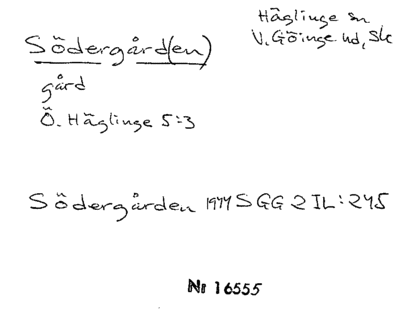 Häglinge sn
V. Göinge hd, Sk
Södergård(en)
gård
Ö. Häglinge 5:3
Södergården 1944 SGG 2 IL: 245
Nr 16555